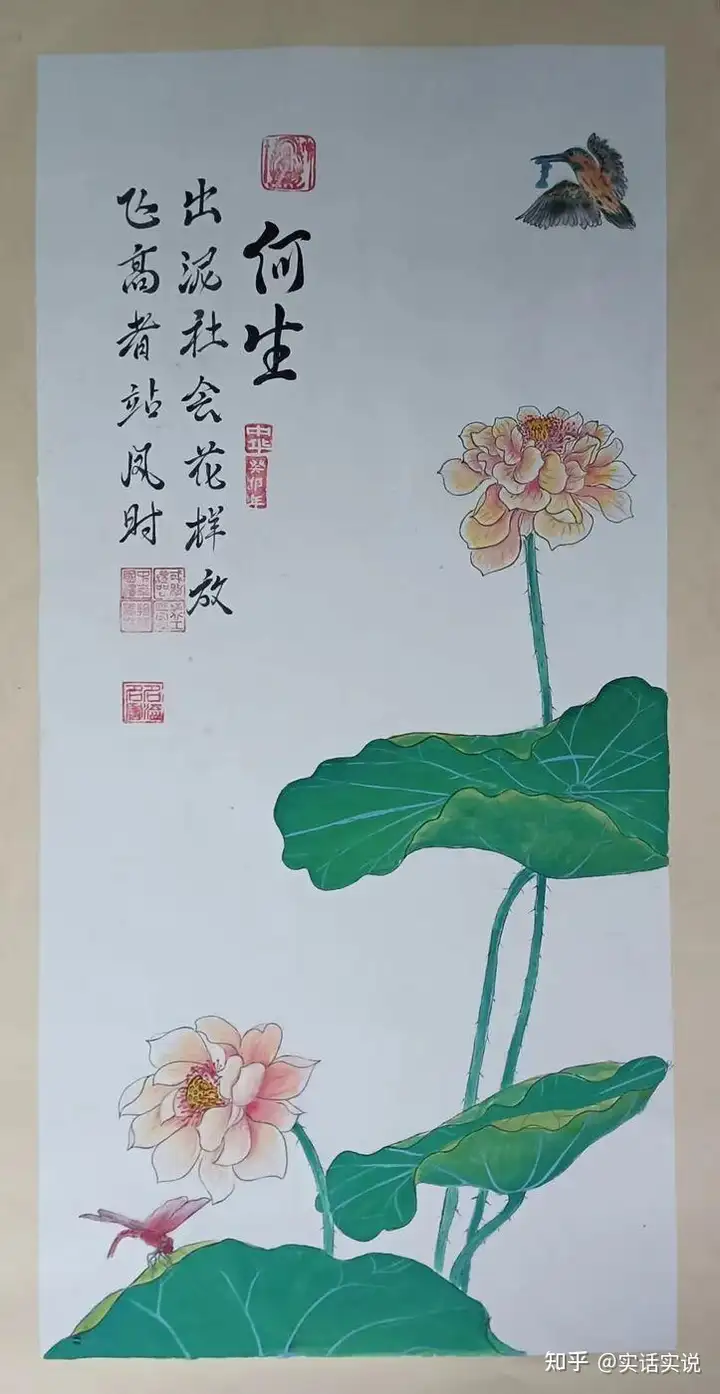 何生
中华
癸卯年
出泥社会花样放
飞高者站凤时
知乎 @实话实说